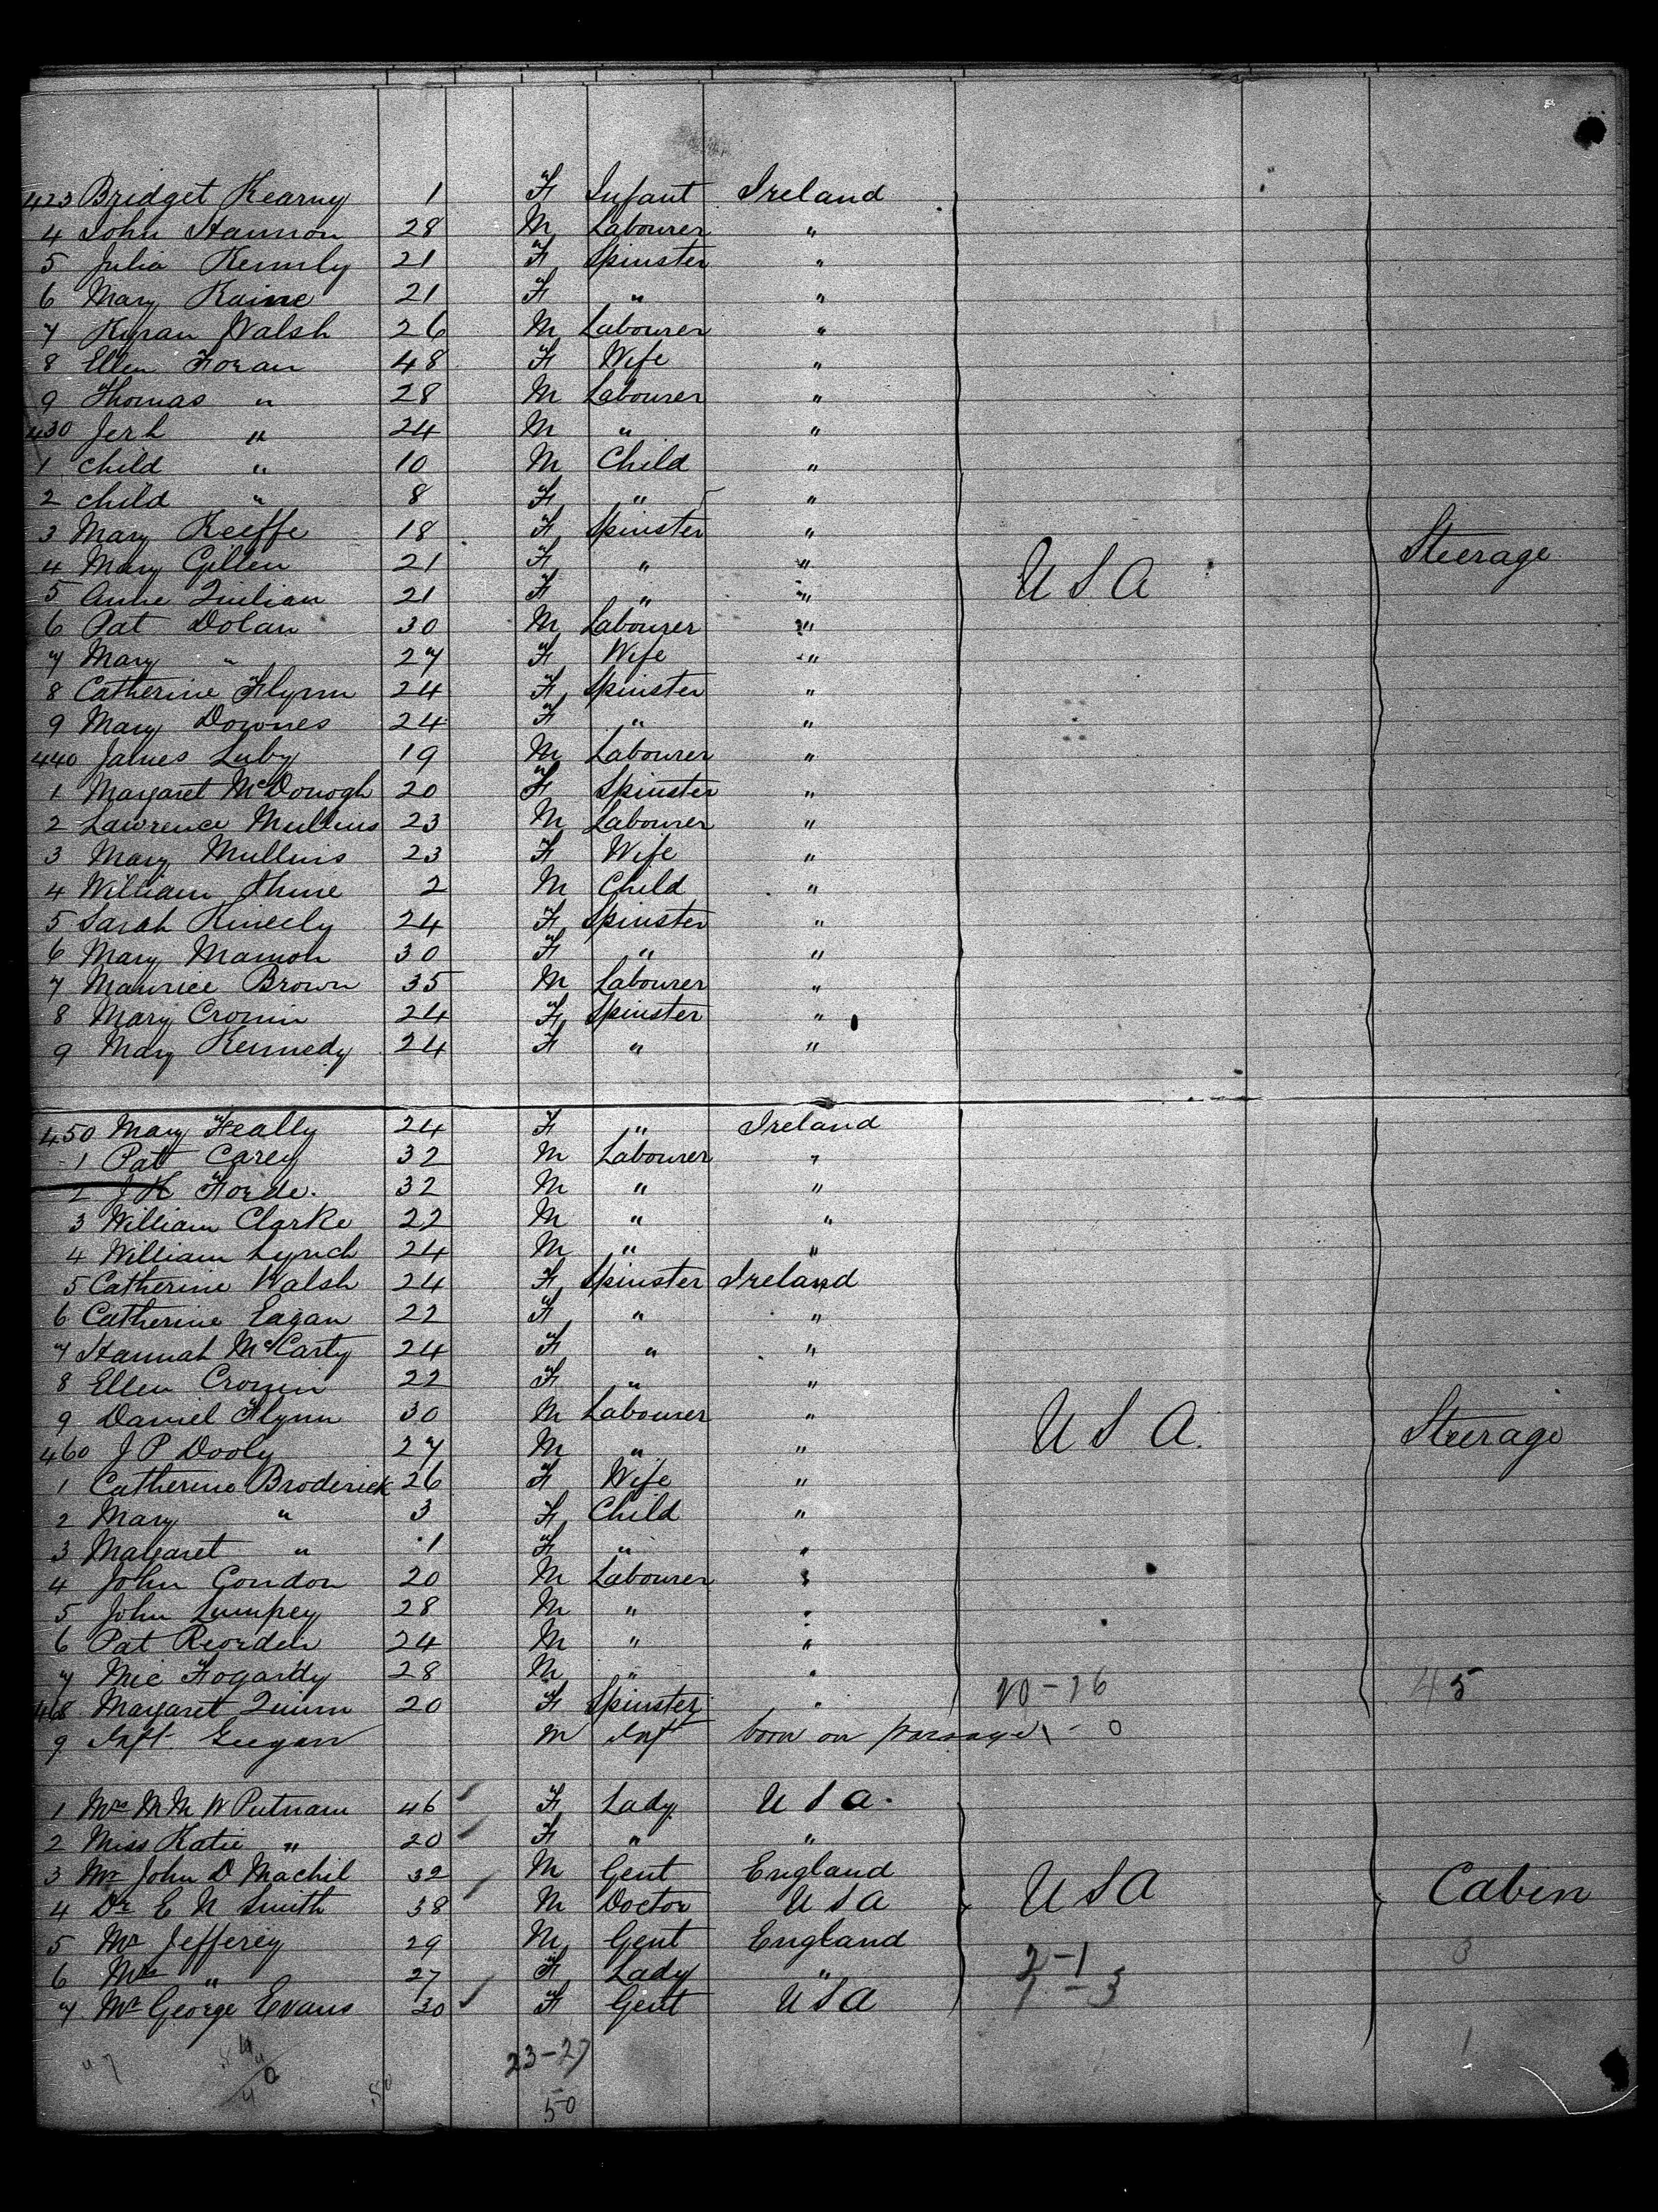 423 Bridget Kearny 1 F Infant Ireland
4 John Hannon 28 M Labourer "
5 Julia Kennly 21 F Spinster "
6 Mary Kaine 21 F " "
7 Kyran Walsh 26 M Labourer "
8 Ellen Foran 48 F Wife "
9 Thomas " 28 M Labourer "
430 Jerh " 24 M " "
1 child " 10 M Child "
2 child " 8 F " "
3 Mary Keeffe 18 F Spinster "
4 Mary Gillen 21 F " " USA Steerage
5 Anne Quilian 21 F " "
6 Pat Dolan 30 M Labourer "
7 Mary " 27 F Wife "
8 Catherine Flynn 24 F Spinster "
9 Mary Downes 24 F " "
440 James Luby 19 M Labourer "
1 Margaret McDonogh 20 F Spinster "
2 Lawrence Mullins 23 M Labourer "
3 Mary Mullins 23 F Wife "
4 William Thine 2 M Child "
5 Sarah Kineely 24 F Spinster "
6 Mary Mannon 30 F " "
7 Maurice Brown 35 M Labourer "
8 Mary Cronin 24 F Spinster "
9 Mary Kennedy 24 F " "
450 Mary Heally 24 F " Ireland
1 Pat Carey 32 M Labourer "
2 J H Forde. 32 M " "
3 William Clarke 22 M " "
4 William Lynch 24 M " "
5 Catherine Walsh 24 F Spinster Ireland
6 Catherine Eagan 22 F " "
7 Hannah McCarty 24 F " "
8 Ellen Cronin 22 F " "
9 Daniel Flynn 30 M Labourer " USA. Steerage
460 J P Dooly 27 M " "
1 Catherine Broderick 26 F Wife "
2 Mary " 3 F Child "
3 Margaret " 1 F " "
4 John Condon 20 M Labourer "
5 John Lumpey 28 M " "
6 Pat Reorden 24 M " "
7 Mic Fogardy 28 M " "
468 Margaret Quinn 20 F Spinster " 20-26 45
9 Inft Geegan M Inf born on passage 1 - 0
1 Mrs M M W Putnam 46 F Lady USA.
2 Miss Katie " 20 F " "
3 Mr John D Machil 32 M Gent England
4 Dr E N Smith 38 M Doctor USA USA Cabin
5 Mr Jefferey 29 M Gent England
6 Mrs " 27 F Lady " 2-1 3
7 Mr George Evans 30 F Gent USA 1-3
23-27
50